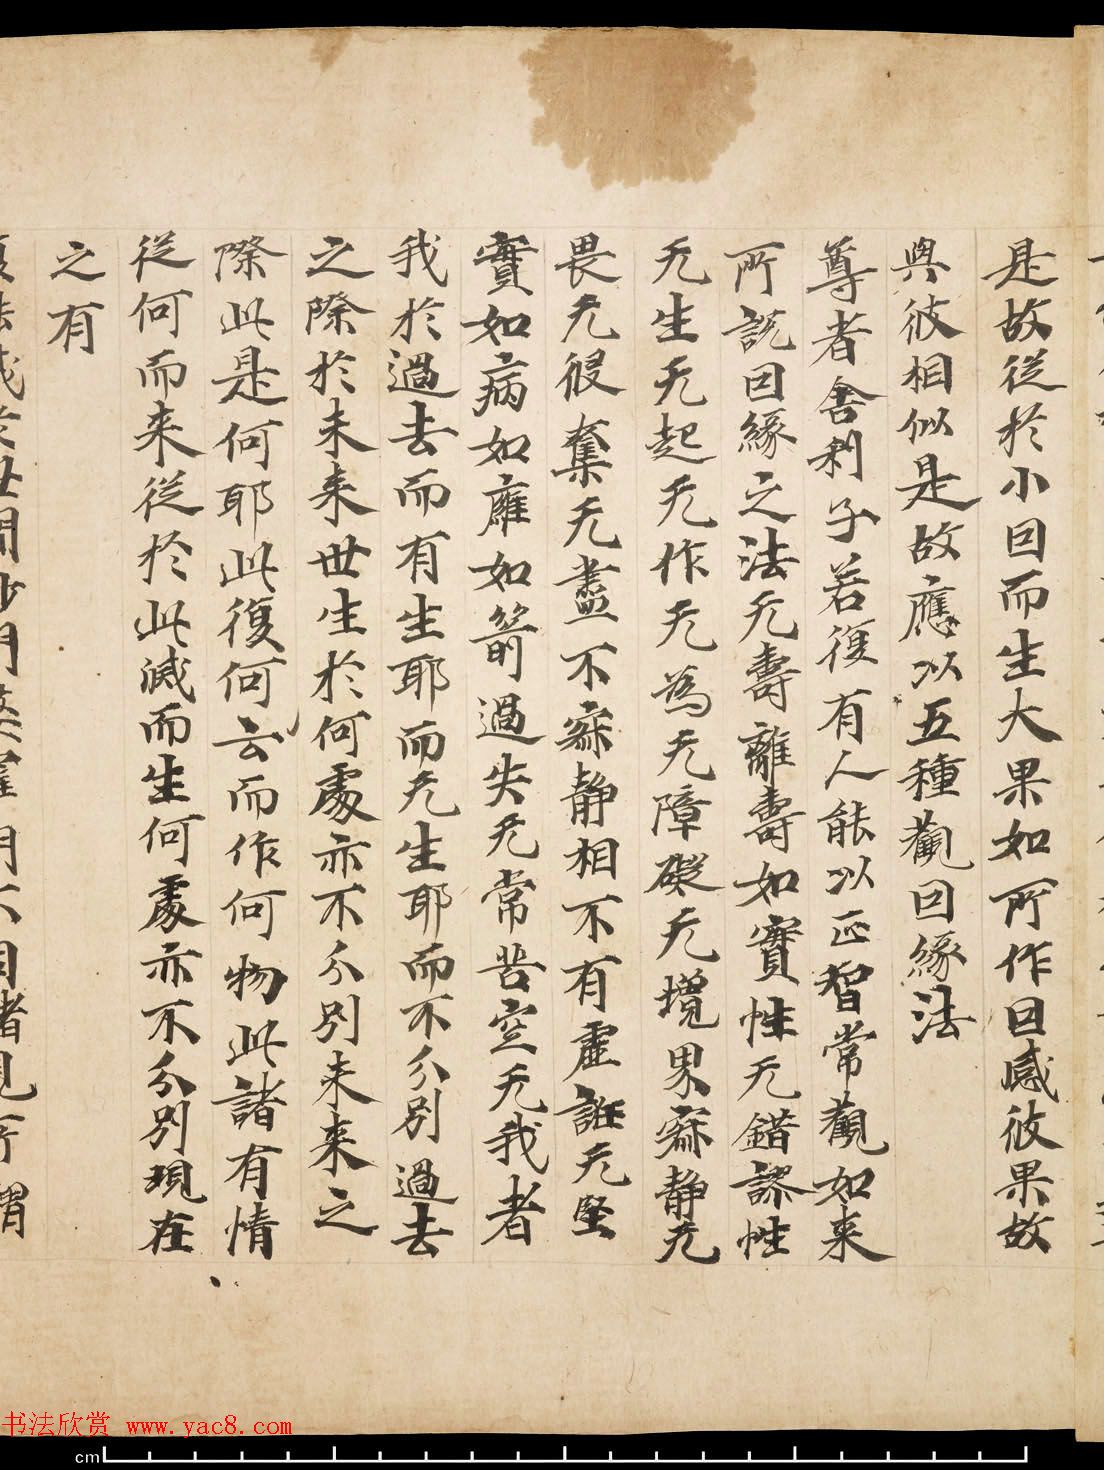 是故從於小因而生大果如所作因感彼果故
與彼相似是故應以五種觀因緣法
尊者舍利子若復有人能以正智常觀如来
所説因緣之法无壽離壽如實性无錯謬性
无生无起无作无為无障礙无境界寂静无
畏无侵奪无盡不寂静相不有虚誑无堅
實如病如癰如箭過失无常苦空无我者
我於過去而有生耶而无生耶而不分別過去
之際於未来世生於何處亦不分別未来之
際此是何耶此復何云而作何物此諸有情
從何而来從於此滅而生何處亦不分別現在
之有
復 滅 世間沙門 門不同諸見所謂
书法欣赏 www.yac8.com
cm